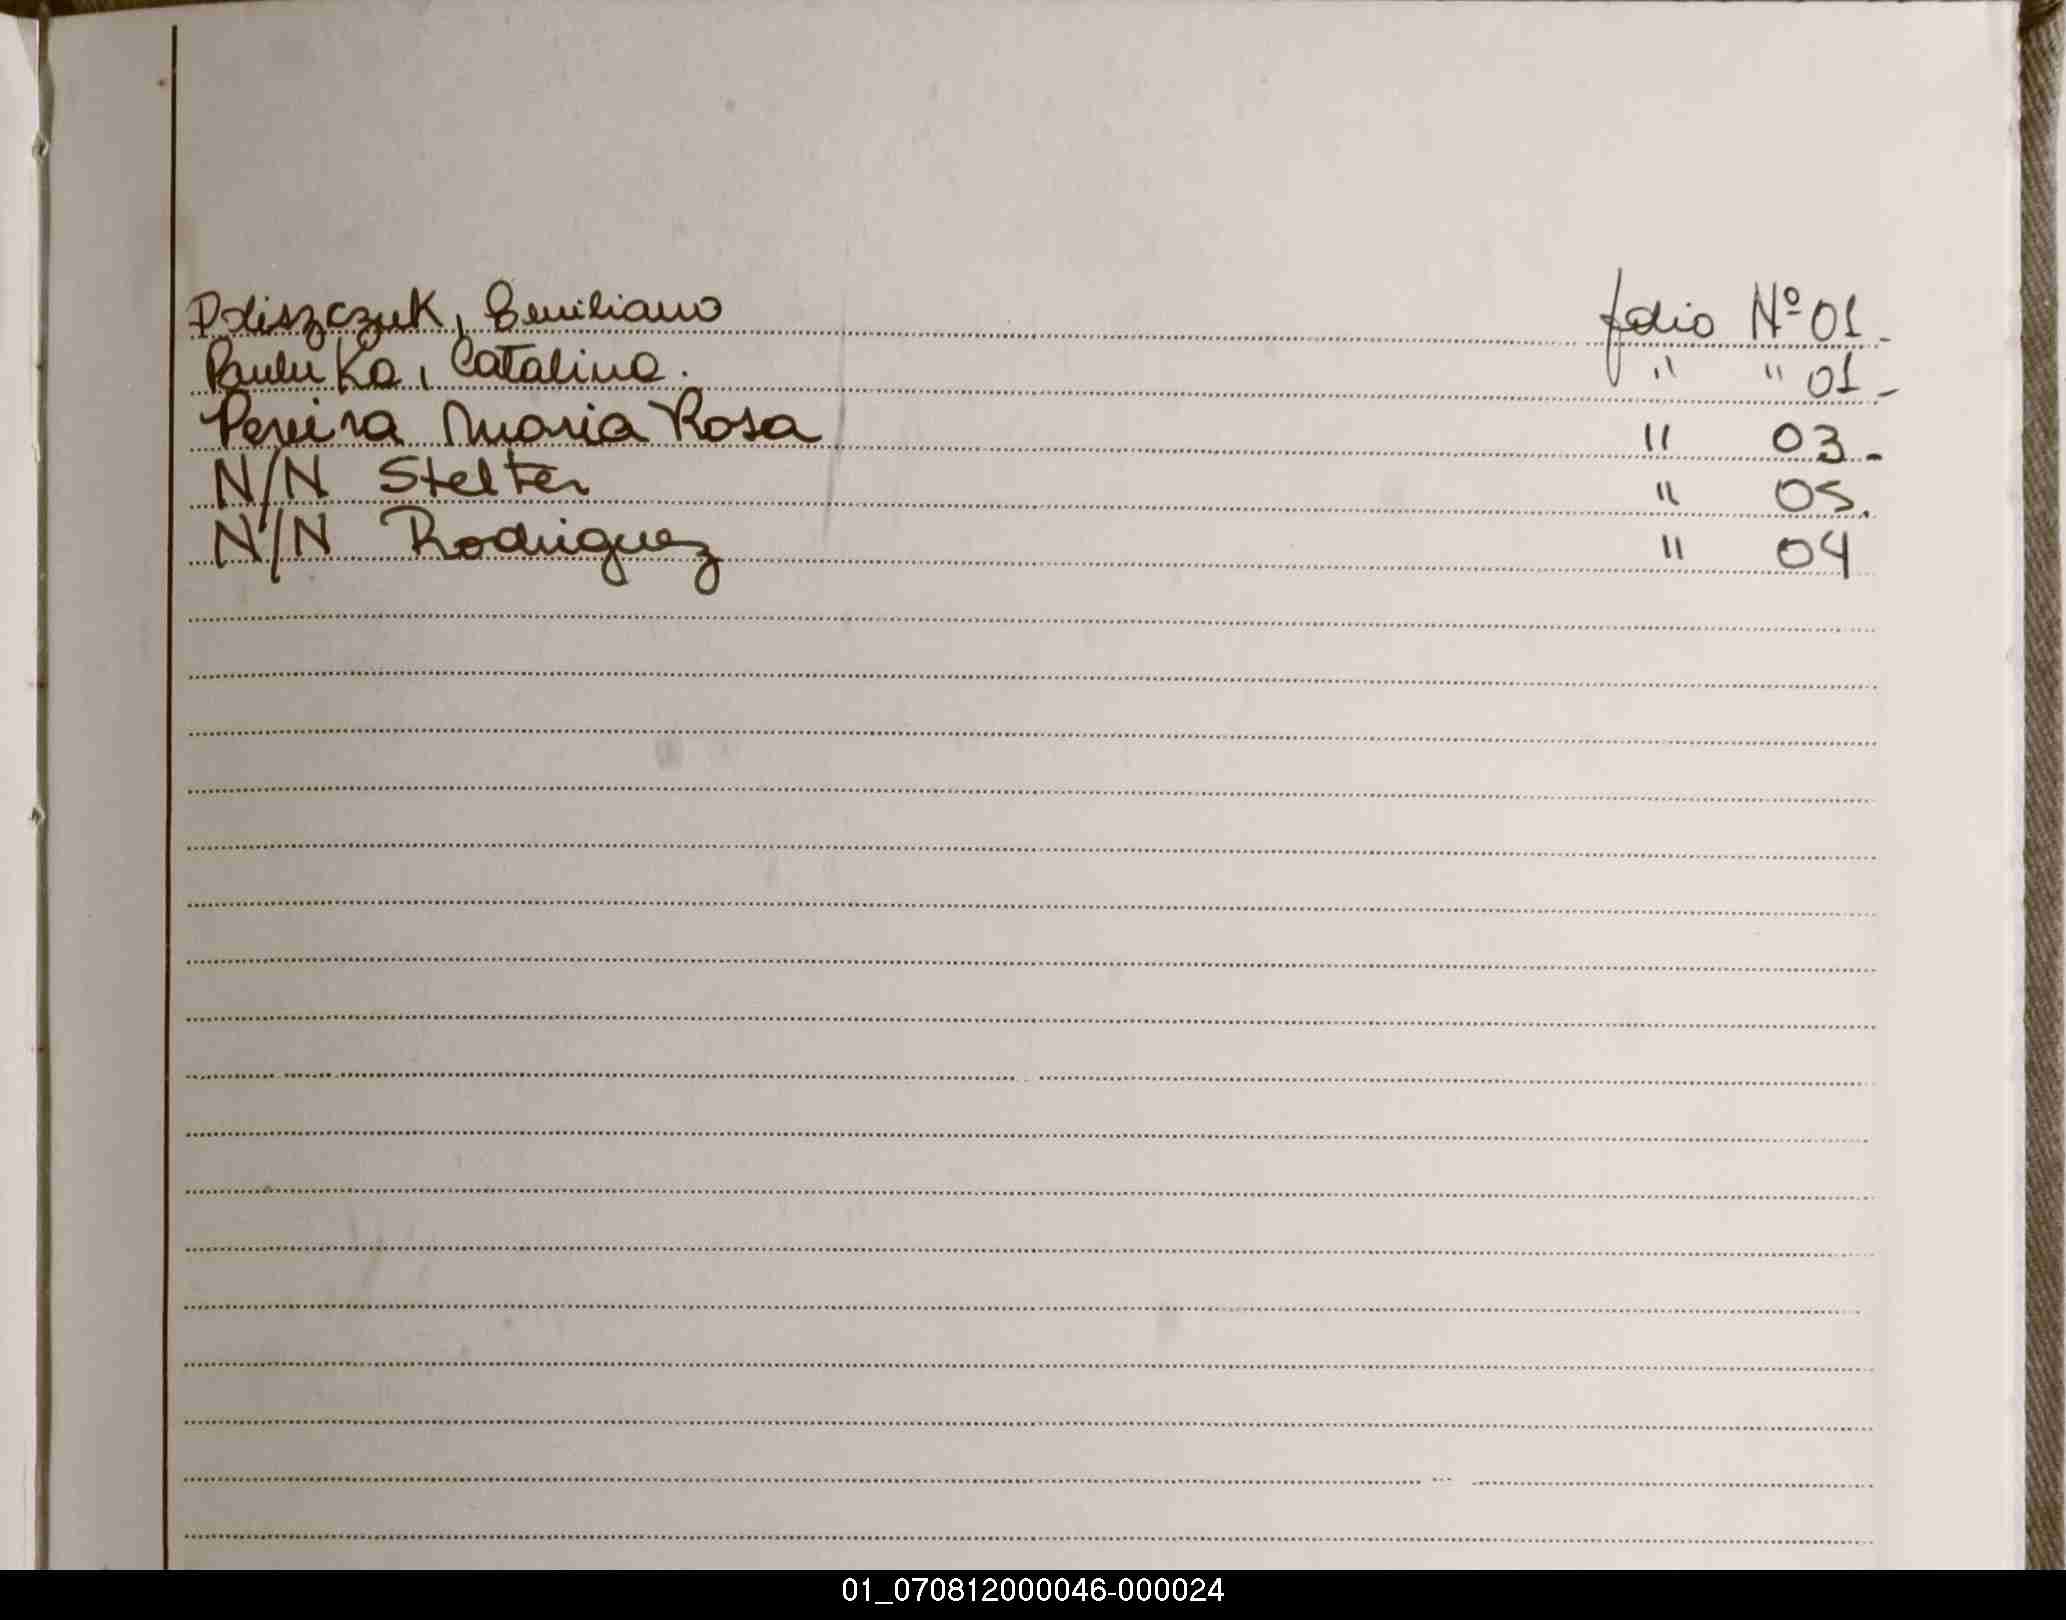 Poliszczuk, Emiliano folio Nº 01.
Pauluka, Catalina. " " 01-
Pereira Maria Rosa " 03-
N/N Stelter " 05.
N/N Rodriguez " 04
01_070812000046-000024